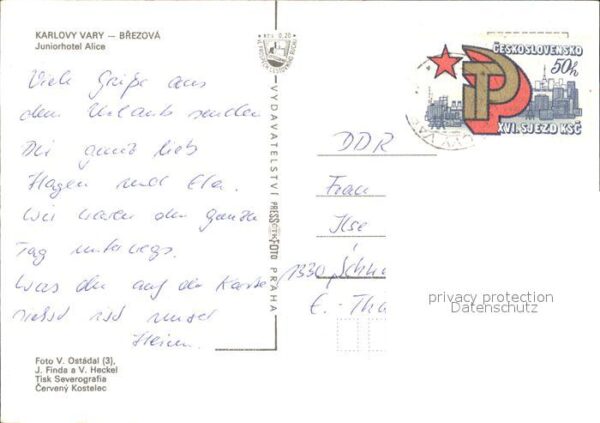 KARLOVY VARY — BŘEZOVÁ
Juniorhotel Alice
Viele Grüße aus
dem Urlaub senden
Dir ganz lieb
Hagen und Ela.
Wir waren den ganzen
Tag unterwegs.
Was du auf der Karte
siehst ist unser
Heim.
Foto V. Ostádal (3),
J. Finda a V. Heckel
Tisk Severografia
Červený Kostelec
VYDAVATELSTVÍ PRESSFOTO PRAHA
ČESKOSLOVENSKO
50h
XVI. SJEZD KSČ
DDR
Frau
Ilse
1330
E.-Tha
privacy protection
Datenschutz